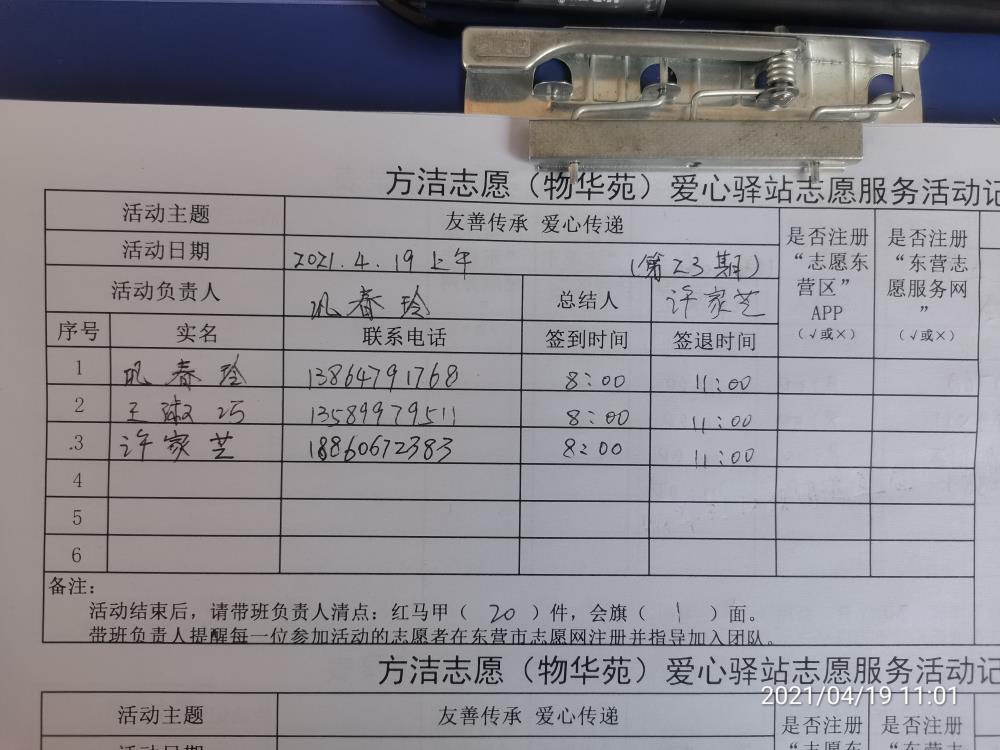 方洁志愿（物华苑）爱心驿站志愿服务活动记
活动主题 友善传承 爱心传递 是否注册“志愿东营区”APP（√或×） 是否注册“东营志愿服务网”（√或×）
活动日期 2021.4.19上午 （第23期）
活动负责人 巩春玲 总结人 许家芝
序号 实名 联系电话 签到时间 签退时间
1 巩春玲 13864791768 8:00 11:00
2 王淑巧 13589979511 8:00 11:00
3 许家芝 18860672383 8:00 11:00
4
5
6
备注：
活动结束后，请带班负责人清点：红马甲（ 20 ）件，会旗（ 1 ）面。
带班负责人提醒每一位参加活动的志愿者在东营市志愿网注册并指导加入团队。
方洁志愿（物华苑）爱心驿站志愿服务活动记
2021/04/19 11:01
活动主题 友善传承 爱心传递 是否注册 是否注册